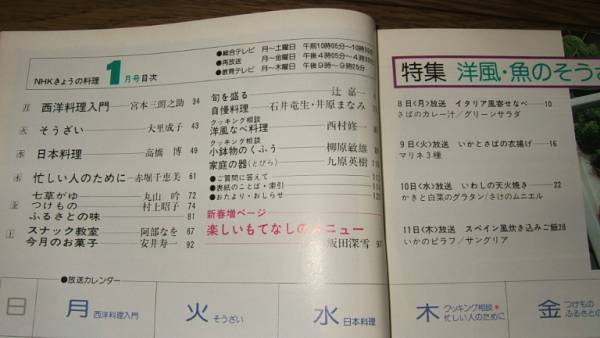 ●総合テレビ 月〜土曜日 午前10時05分〜10時
●再放送 月〜金曜日 午後4時05分〜4時
●教育テレビ 月〜木曜日 午後9時〜9時25分
NHKきょうの料理 1月号目次
月 西洋料理入門 宮本三朗之助 34
火 そうざい 大里成子 43
水 日本料理 高橋 博 49
木 忙しい人のために 赤堀千恵美 61
七草がゆ 丸山 吟 72
金 つけもの 村上昭子 74
ふるさとの味 81
土 スナック教室 阿部なを 67
今月のお菓子 安井寿一 92
旬を盛る 辻 嘉一
自慢料理 石井竜生・井原まなみ
クッキング相談
洋風なべ料理 西村修一
クッキング相談
小鉢物のくふう 柳原敏雄
家庭の器(とびら) 九原英樹
●ご質問に答えて
●表紙のことば・索引
●おたより・おしらせ
新春増ページ
楽しいもてなしのメニュー
飯田深雪
●放送カレンダー
日
月 西洋料理入門
火 そうざい
水 日本料理
木 クッキング相談* 忙しい人のために
金 つけもの ふるさとの
特集 洋風・魚のそうざ
8日〈月〉放送 イタリア風寄せなべ 10
さばのカレー汁/グリーンサラダ
9日〈火〉放送 いかとさばの衣揚げ 16
マリネ3種
10日〈水〉放送 いわしの天火焼き 22
かきと白菜のグラタン/さけのムニエル
11日〈木〉放送 スペイン風炊き込みご飯28
いかのピラフ/サングリア